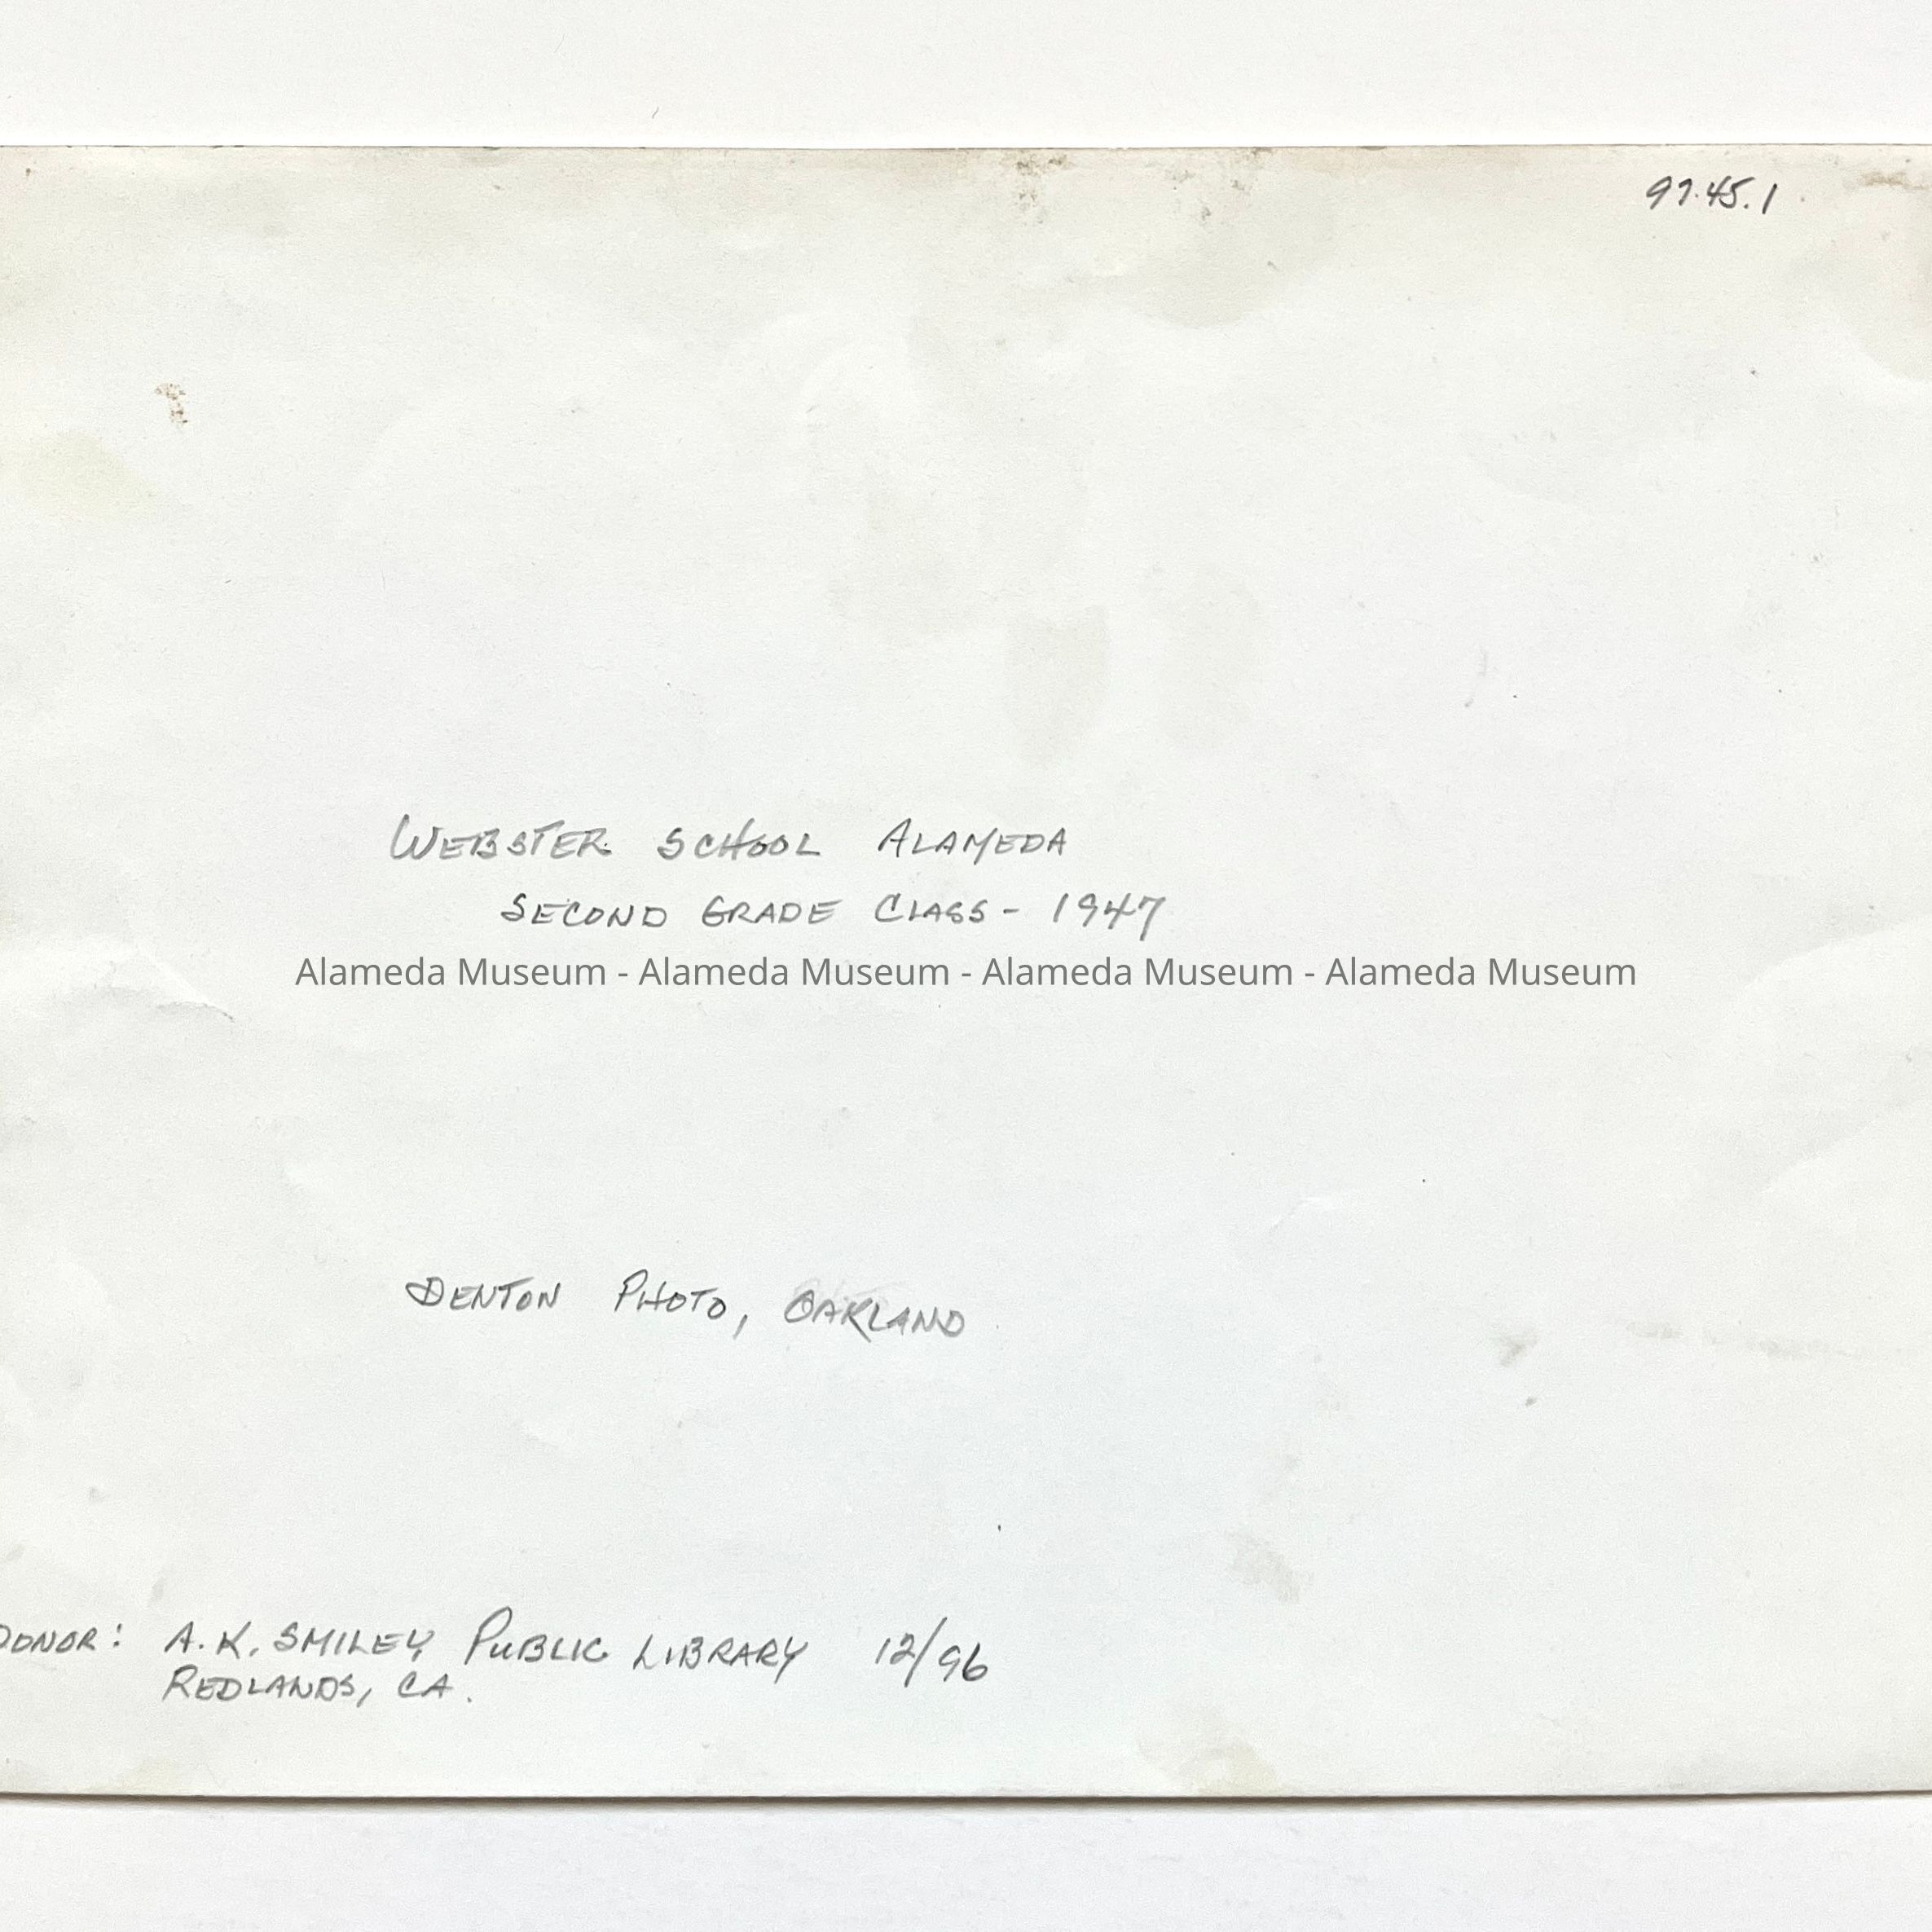 97.45.1
WEBSTER SCHOOL ALAMEDA
SECOND GRADE CLASS - 1947
Alameda Museum - Alameda Museum - Alameda Museum - Alameda Museum
DENTON PHOTO, OAKLAND
DONOR: A.K. SMILEY PUBLIC LIBRARY 12/96
REDLANDS, CA.